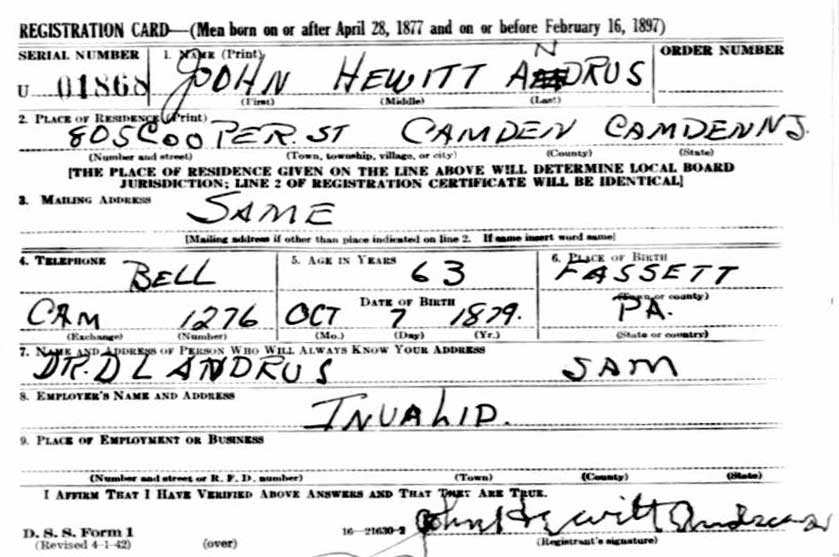 REGISTRATION CARD—(Men born on or after April 28, 1877 and on or before February 16, 1897)
SERIAL NUMBER 1. NAME (Print) ORDER NUMBER
U 01868 JOHN HEWITT ANDRUS
(First) (Middle) (Last)
2. PLACE OF RESIDENCE (Print)
805 COOPER. ST CAMDEN CAMDEN NJ.
(Number and street) (Town, township, village, or city) (County) (State)
[THE PLACE OF RESIDENCE GIVEN ON THE LINE ABOVE WILL DETERMINE LOCAL BOARD
JURISDICTION; LINE 2 OF REGISTRATION CERTIFICATE WILL BE IDENTICAL]
3. MAILING ADDRESS
SAME
[Mailing address if other than place indicated on line 2. If same insert word same]
4. TELEPHONE 5. AGE IN YEARS 6. PLACE OF BIRTH
BELL 63 FASSETT
DATE OF BIRTH (Town or county)
CAM 1276 OCT 7 1879. PA.
(Exchange) (Number) (Mo.) (Day) (Yr.) (State or country)
7. NAME AND ADDRESS OF PERSON WHO WILL ALWAYS KNOW YOUR ADDRESS
DR. D L ANDRUS SAM
8. EMPLOYER'S NAME AND ADDRESS
INVALID.
9. PLACE OF EMPLOYMENT OR BUSINESS
(Number and street or R. F. D. number) (Town) (County) (State)
I AFFIRM THAT I HAVE VERIFIED ABOVE ANSWERS AND THAT THEY ARE TRUE.
D. S. S. Form 1 16—21630-2 John Hewitt Andrus
(Revised 4-1-42) (over) (Registrant's signature)